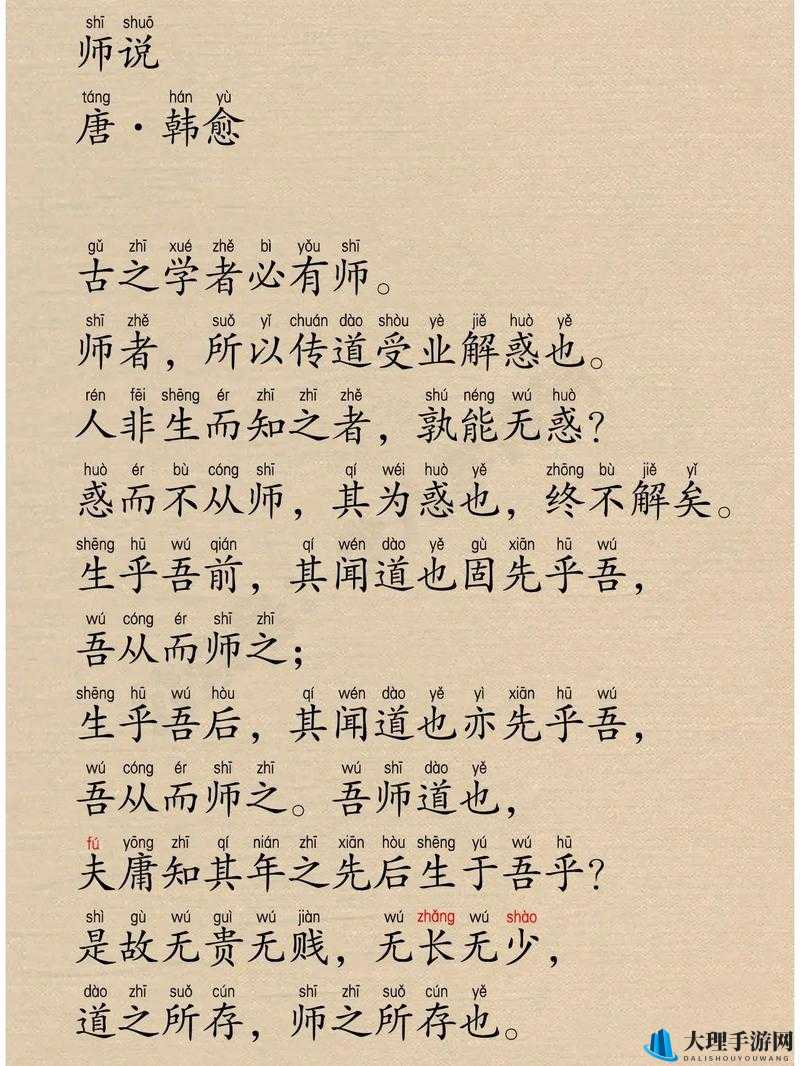 shī shuō
师说
táng hán yù
唐·韩愈
gǔ zhī xué zhě bì yǒu shī
古之学者必有师。
shī zhě suǒ yǐ chuán dào shòu yè jiě huò yě
师者，所以传道受业解惑也。
rén fēi shēng ér zhī zhī zhě shú néng wú huò
人非生而知之者，孰能无惑？
huò ér bù cóng shī qí wéi huò yě zhōng bù jiě yǐ
惑而不从师，其为惑也，终不解矣。
shēng hū wú qián qí wén dào yě gù xiān hū wú
生乎吾前，其闻道也固先乎吾，
wú cóng ér shī zhī
吾从而师之；
shēng hū wú hòu qí wén dào yě yì xiān hū wú
生乎吾后，其闻道也亦先乎吾，
wú cóng ér shī zhī wú shī dào yě
吾从而师之。吾师道也，
fú yōng zhī qí nián zhī xiān hòu shēng yú wú hū
夫庸知其年之先后生于吾乎？
shì gù wú guì wú jiàn wú zhǎng wú shào
是故无贵无贱，无长无少，
dào zhī suǒ cún shī zhī suǒ cún yě
道之所存，师之所存也。
大理手游网
DALISHOUYOUWANG